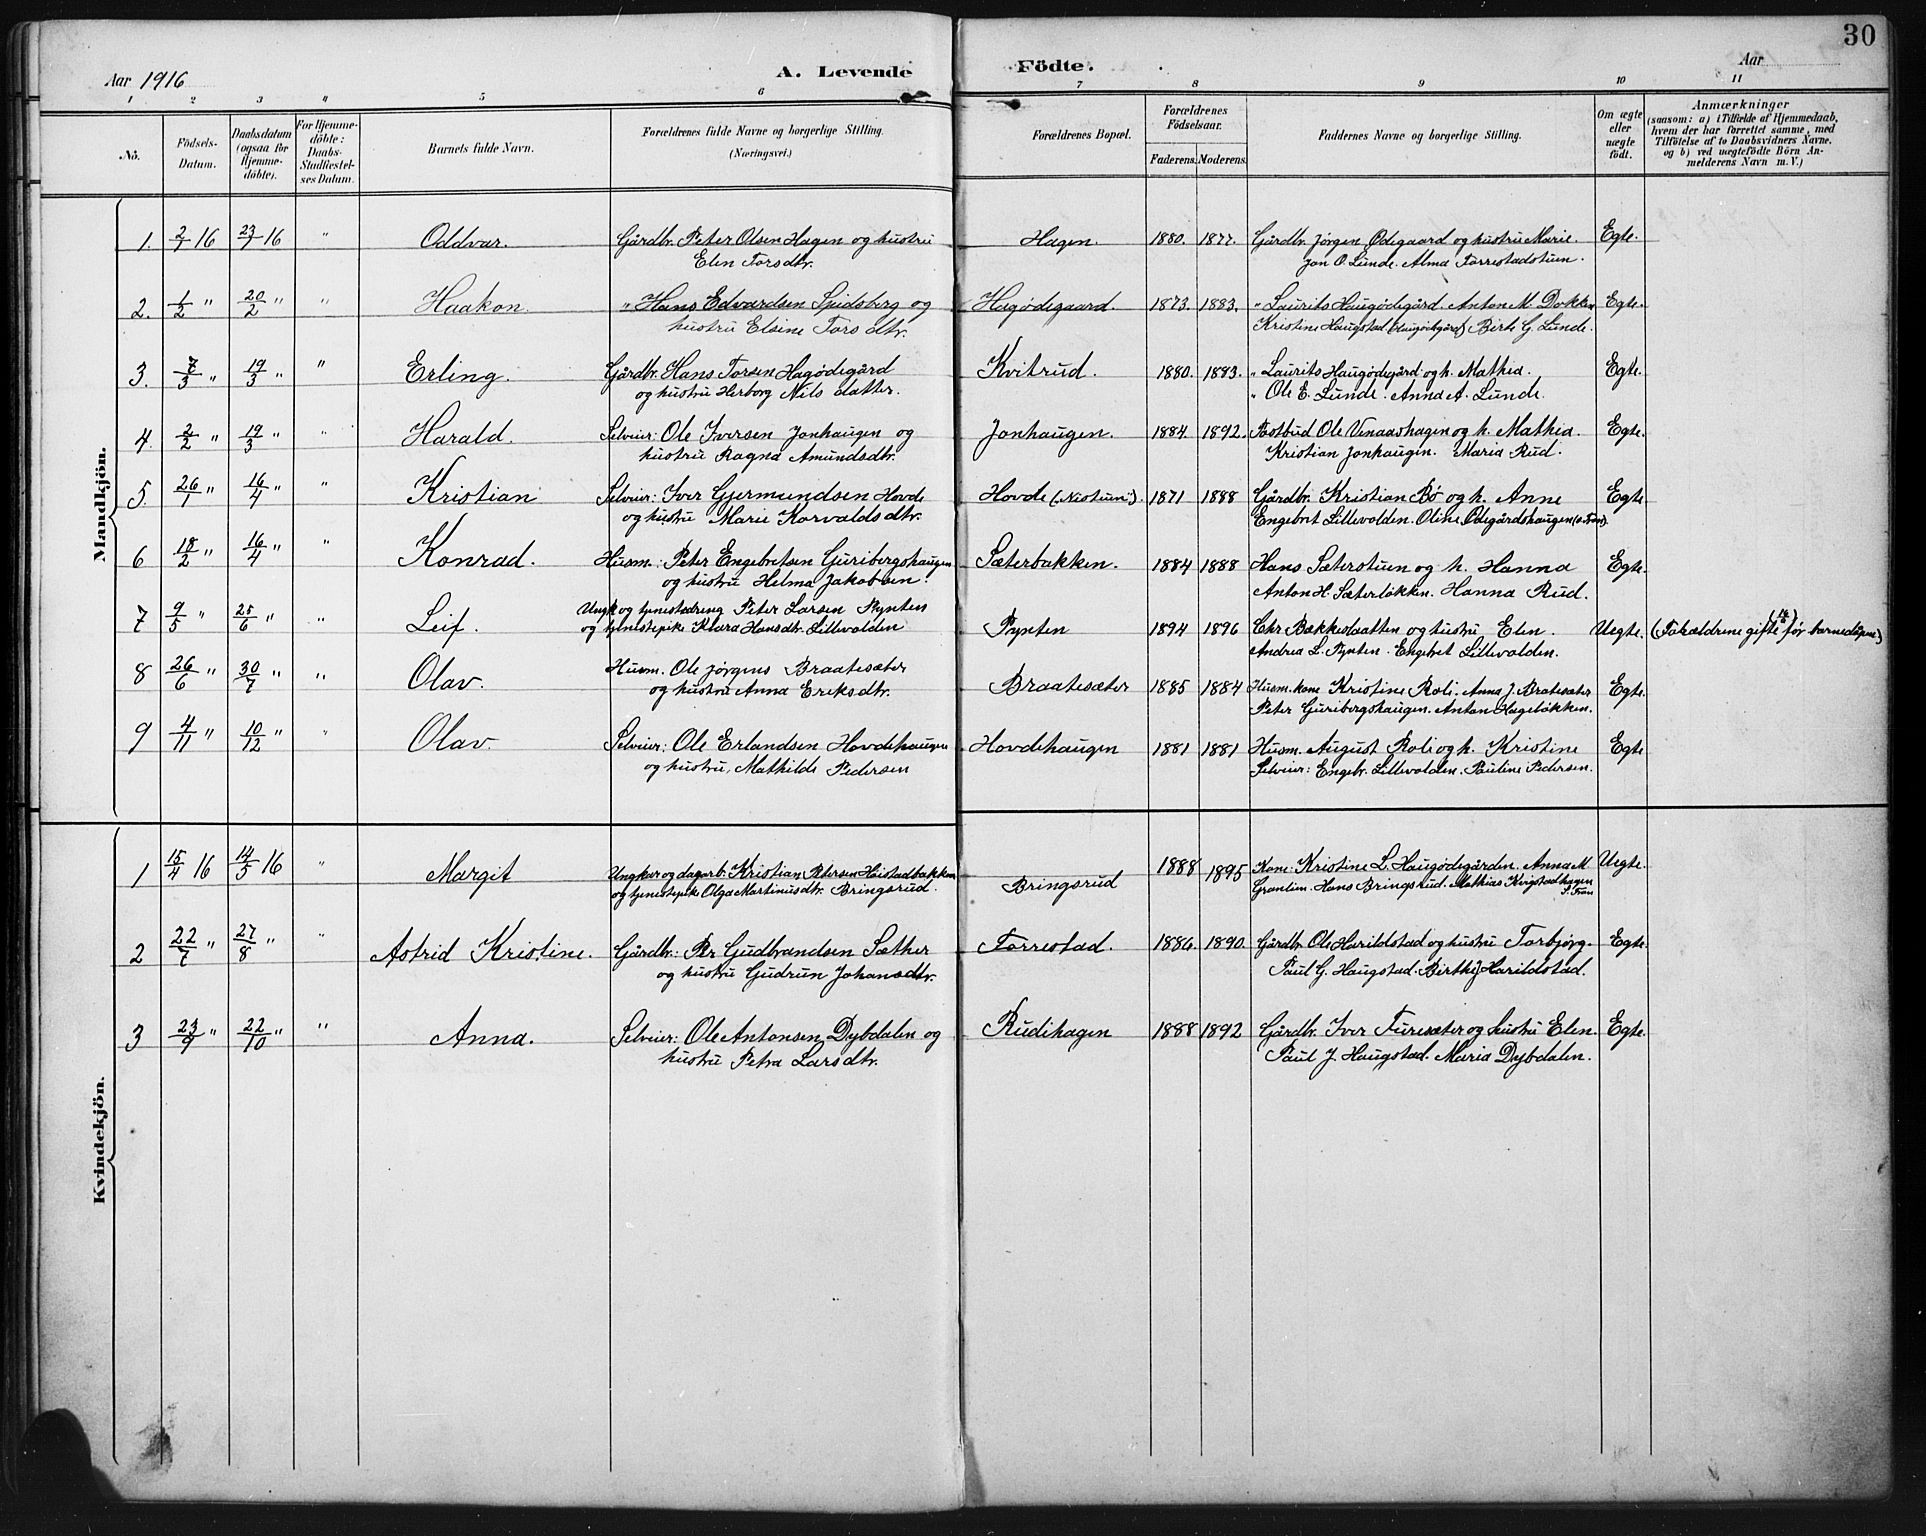 30
Aar 1916
A. Levende Födte.
Aar
1 2 3 4 5 6 7 8 9 10 11
No.
Födsels-Datum.
Daabsdatum (ogsaa for Hjemmedöbte).
For Hjemmedöbte: Daabs-Stadfæstelses Datum.
Barnets fulde Navn.
Forældrenes fulde Navne og borgerlige Stilling. (Næringsvei.)
Forældrenes Bopæl.
Forældrenes Födselsaar.
Faderens. Moderens.
Faddernes Navne og borgerlige Stilling.
Om ægte eller uægte födt.
Anmærkninger
(saasom: a) i Tilfælde af Hjemmedaab, hvem der har forrettet samme, med Tilföielse af to Daabsvidners Navne, og b) ved uægtefödte Börn Anmelderens Navn m. V.)
Mandkjön.
1. 2/1 16 23/1 16 " Oddvar. Gårdbr. Peter Olsen Hagen og hustru Hagen. 1880. 1877. Gårdbr. Jørgen Ødegaard og hustru Marie. Egte.
Elen Torsdtr. Jon O. Lunde. Alma Torrestadstuen.
2. 1/2 " 20/2 " " Haakon. " Hans Edvardsen Spidsberg og Hagødegaard. 1873. 1883. " Laurits Haugødegård. Anton M. Dokken Egte.
hustru Elsine Torsdtr. Kristine Haugstad (Haugødegård) Birte G. Lunde.
3. 7/3 " 19/3 " " Erling. Gårdbr. Hans Torsen Hagødegård Kvitrud. 1880. 1883. " Laurits Haugødegård og h. Mathea. Egte.
og hustru Herborg Nils datter. " Ole E. Lunde. Anna A. Lunde.
4. 2/2 " 19/3 " " Harald. Selveier: Ole Iversen Jonhaugen og Jonhaugen. 1884. 1892. Postbud Ole Venaashagen og h. Mathea. Egte.
hustru Ragna Amundsdtr. Kristian Jonhaugen. Maria Rud.
5. 26/1 " 16/4 " " Kristian Selveier: Iver Gjermundsen Hovde Hovde (Nistuen). 1871 1888 Gårdbr. Kristian Bø og h. Anne Egte
og hustru Marie Korvaldsdtr. Engebret Lillevolden. Oline Ødegårdshaugen (s. Fron).
6 18/2 " 16/4 " " Konrad. Husm.: Peter Engebretsen Guribergshaugen Sæterbakken. 1884 1888 Hans Sæterstuen og h. Hanna Egte.
og hustru Helma Jakobsen. Anton H. Sæterløkken. Hanna Rud.
7 9/5 " 25/6 " " Leif. Ungk. og tjenestedreng Peter Larsen Pynten Pynten 1894 1896 Chr Bakkeslaatten og hustru Elen. Uegte. (Forældrene gifte før barnedåpen)
og tjenestepike Klara Hansdtr. Lillevolden Andrea L. Pynten. Engebret Lillevolden.
8 26/6 " 30/7 " " Olav. Husm. Ole Jørgens Braatesæter Braatesæter 1885 1884 Husm. kone Kristine Roli. Anna J. Bratesæter Egte.
og hustru Anna Eriksdtr. Peter Guribergshaugen. Anton Hageløkken.
9 4/11 " 10/12 " " Olav. Selveier: Ole Erlandsen Hovdehaugen Hovdehaugen 1881 1881 Husm. August Roli og h. Kristine Egte
og hustru, Mathilde Pedersen Selveier: Engebr. Lillevolden. Pauline Pedersen.
Kvindekjön.
1 15/4 16 14/5 16 " Margit Ungkar og dagarb. Kristian Petersen Heistadbakken Bringsrud 1888 1895 Kone: Kristine L. Haugødegården. Anna M. Uegte.
og tjenestepike Olga Martinusdtr. Bringsrud. Granlien. Hans Bringsrud. Mathias Kirgstadhagen S. Fron
2 22/7 " 27/8 " " Astrid Kristine. Gårdbr.: Per Gudbrandsen Sæther Torrestad. 1886. 1890. Gårdbr. Ole Harildstad og hustru Torbjørg. Egte.
og hustru Gudrun Johansdtr. Paul G. Haugstad. Birthe J. Harildstad.
3 23/9 " 22/10 " " Anna. Selveier: Ole Antonsen Dybdalen og Rudihagen 1888 1892 Gårdbr. Iver Furesæter og hustru Elen Egte.
hustru Petra Larsdtr. Paul J. Haugstad. Maria Dybdalen.